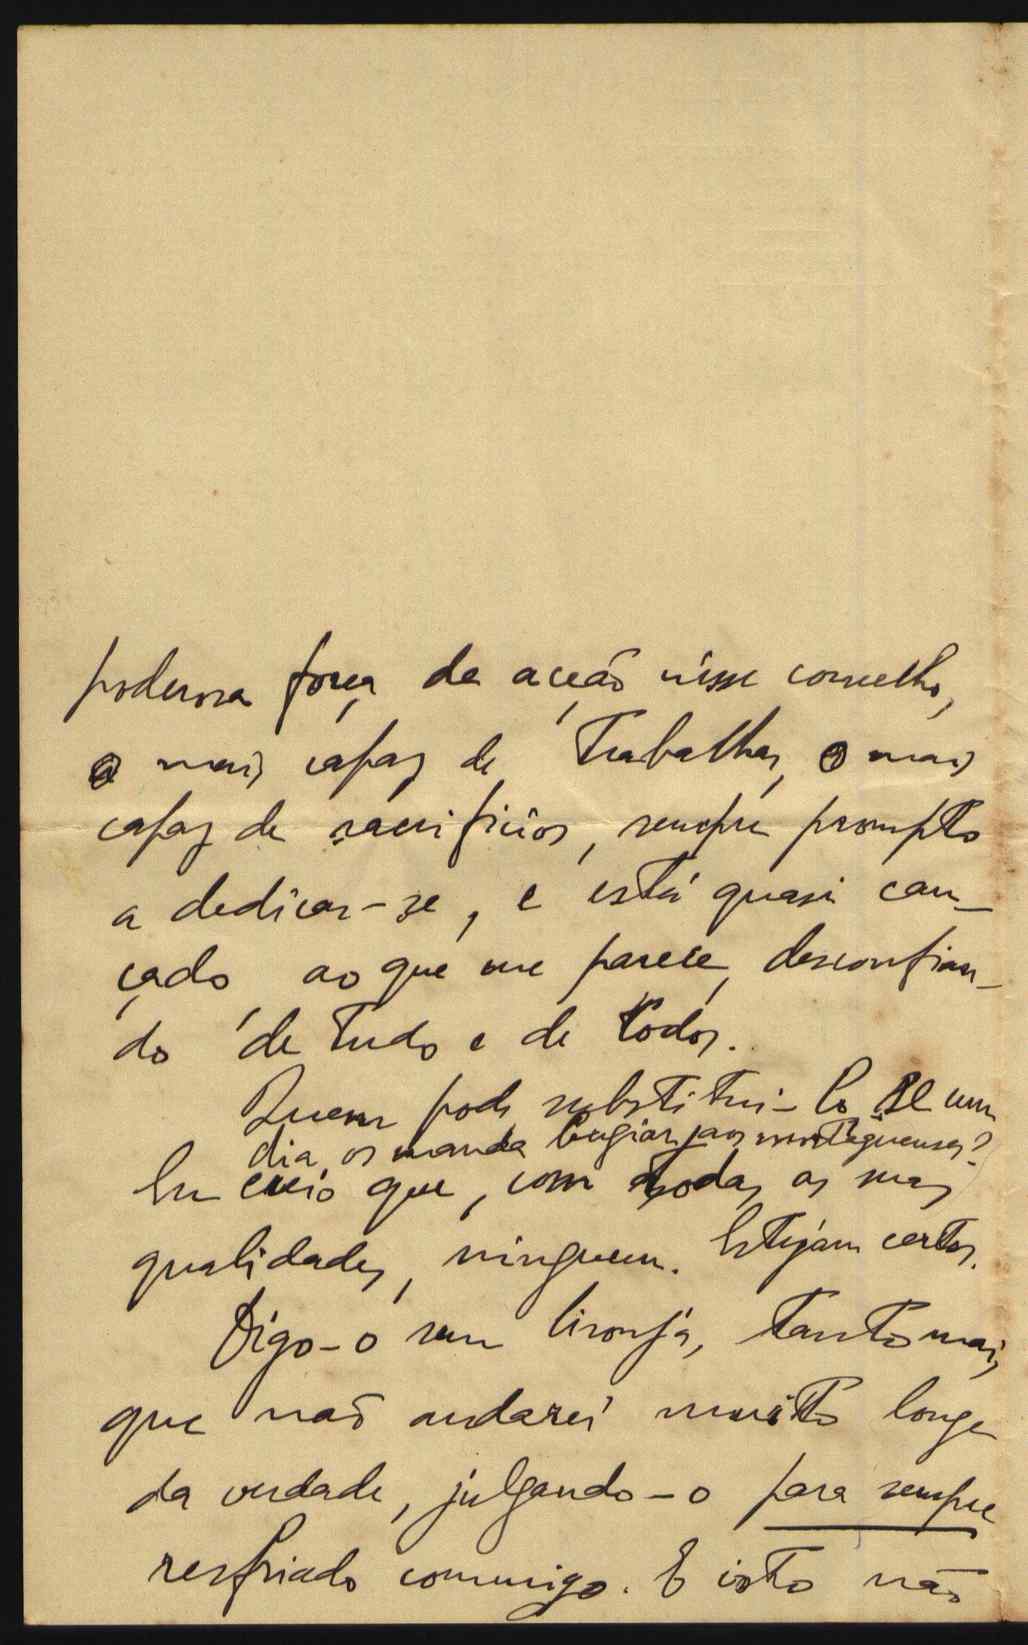 poderosa força de acção nesse concelho,
o mais capaz de trabalhar, o mais
capaz de sacrificios, sempre prompto
a dedicar-se, e está quasi can-
çado, ao que me parece, desconfian-
do de tudo e de todos.
Quem pode substitui-lo se um
dia os manda bugiar, aos montiguenses?
Eu creio que, com todas as suas
qualidades, ninguem. Estejam certos.
Digo-o sem lisonja, tanto mais
que não andarei muito longe
da verdade, julgando-o para sempre
resfriado commigo. E isto não